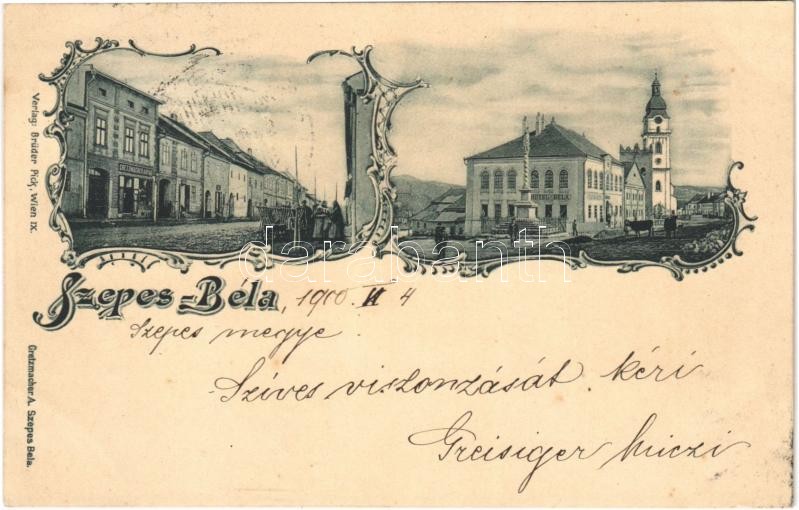 HOTEL BELA
Verlag: Brüder Pick, Wien IX.
darabanth
Szepes-Béla, 1900 II 4
Szepes megye.
Szives viszonzását kéri
Greisiger Miczi
Gretzmacher A. Szepes Bela.